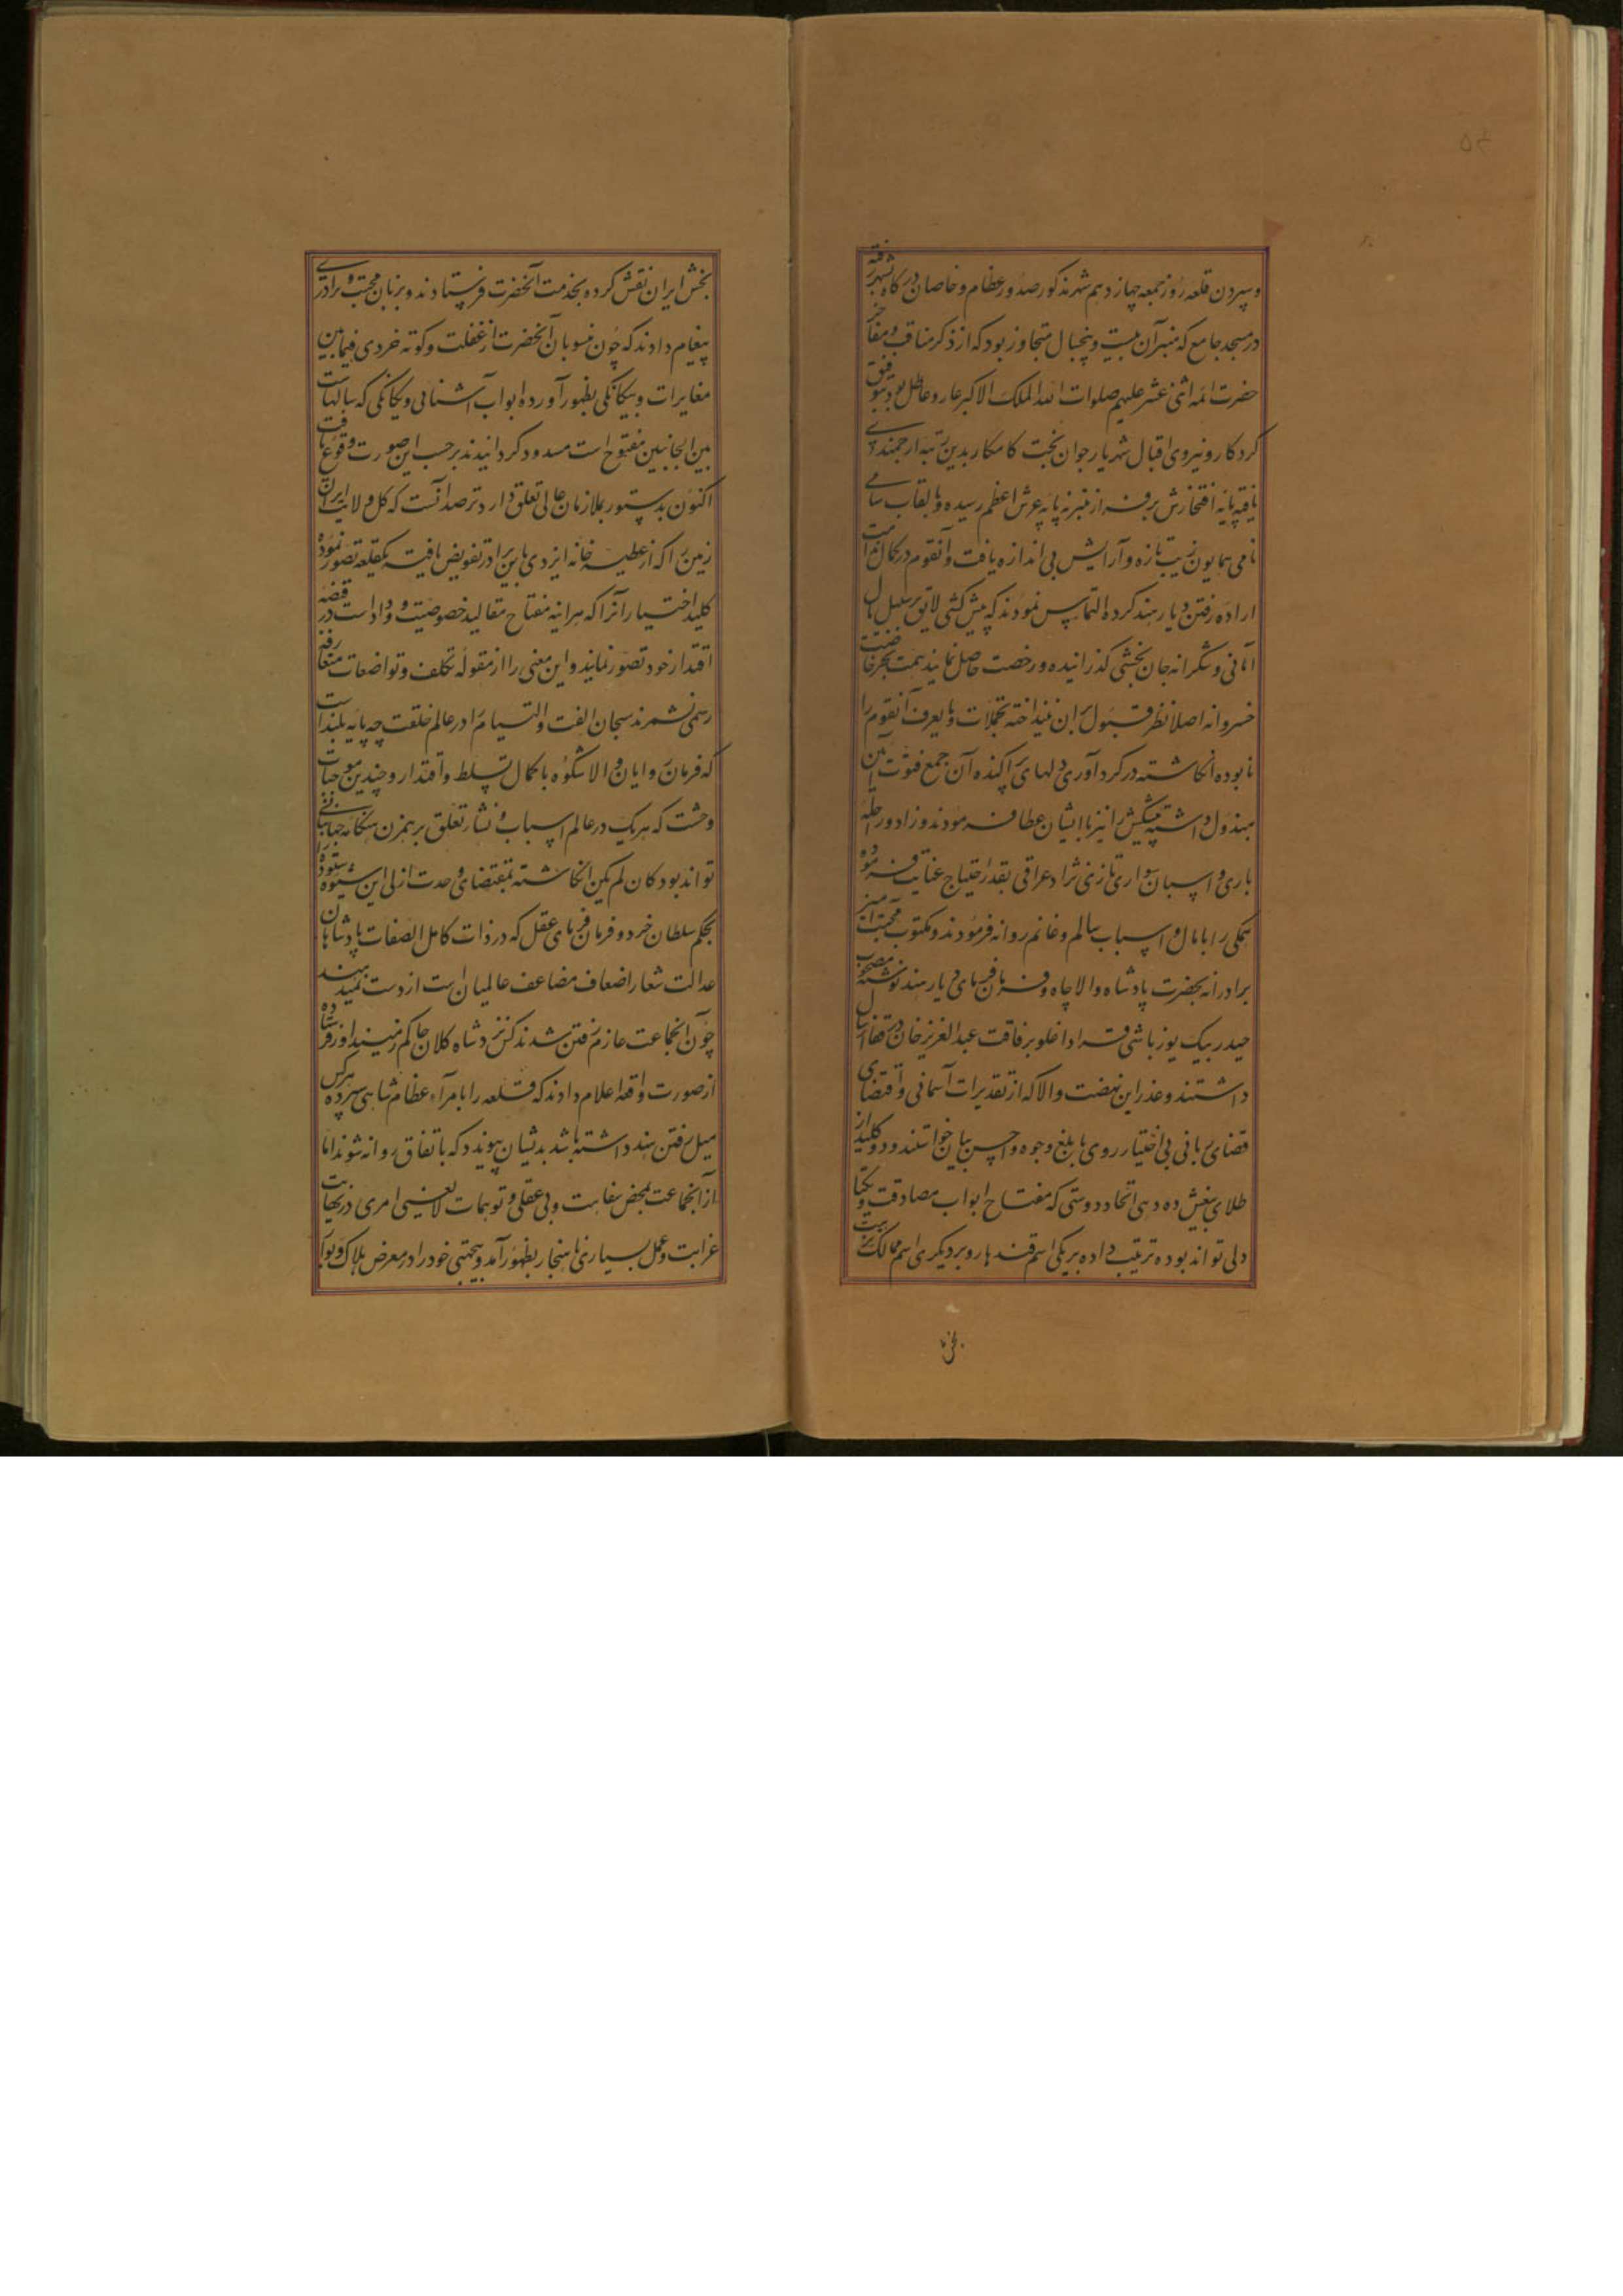 و سپردن قلعه روز جمعه چهاردهم شهر مذکور صدور عظام و خاصان درگاه بشهر رفته
در مسجد جامع که منبر آن بیست و پنجسال متجاوز بود که از ذکر مناقب و مفاخر
حضرت ائمه اثنی عشر علیهم صلوات الله الملک الاکبر عار و عاطل بود بتوفیق
کردکار و نیروی اقبال شهریار جوان بخت کامکار بدین رتبه ارجمندی
یافته پایه افتخارش برفراز منبر نه پایه عرش اعظم رسیده و بالقاب سامی
نامی همایون زیب تازه و آرایش بی اندازه یافت و آنقوم در کمال ندامت
اراده رفتن دیار هند کرده التماس نمودند که پیشکشی لایق برسبیل مال
امانی و شکرانه جان بخشی گذرانیده و رخصت حاصل نمایند همت بحر خاصیت
خسروانه اصلا نظر قبول بران نینداخته تجملات و مایعرف آنقوم را
نابوده انکاشته در گردآوری دلهای پراکنده آن جمع فتوت آیین
مبذول داشته پیشکش را نیز باایشان عطا فرمودند و زاد و راحله
باری و اسبان سواری تازی نژاد عراقی بقدر احتیاج عنایت فرموده
همگی را با مال و اسباب سالم و غانم روانه فرمودند و مکتوب محبت آمیز
برادرانه بحضرت پادشاه والاجاه و فرمان فرمای دیار هند نوشته مصحوب
حیدر بیک یوزباشی قرا داغلو برفاقت عبدالعزیز خان در قفا ارسال
داشتند و عذر این نهضت والا که از تقدیرات آسمانی و اقتضای
قضای ربانی بی اختیار روی با بلغ وجوه و احسن بیان خواستند و دو کلید از
طلای بیغش ده دهی اتحاد و دوستی که مفتاح ابواب مصادقت و یکتا
دلی تواند بوده ترتیب داده بر یکی اسم قندهار و بر دیگری اسم ممالک نزهت
بخش
بخش ایران نقش کرده بخدمت آنحضرت فرستادند و بزبان محبت و برادری
پیغام دادند که چون منسوبان آنحضرت از غفلت و کوته خردی فیمابین
مغایرات و بیکانکی بظهور آورده ابواب آشنائی و یکانکی که سالهاست
بین الجانبین مفتوح است مسدود کردانیدند برحسب این صورت وقوع یافت
اکنون بدستور بملازمان عالی تعلق دارد ترصد آنست که کل ولایت ایران
زمین را که از عطیه خانه ایزدی باین برادر تفویض یافته یکقلعه تصور نموده
کلید اختیار آنرا که هرآینه مفتاح مقالید خصوصیت و وداد است در قبضه
اقتدار خود تصور نمایند و این معنی را از مقوله تکلف و تواضعات متعارفه
رسمی نشمرند سبحان الله الفت و التیام را در عالم خلقت چه پایه بلند است
که فرمان روایان والا شکوه با کمال تسلط و اقتدار و چندین موجبات
وحشت که هریک در عالم اسباب و نشاء تعلق برهمزن هنگامه جهانبانی
تواند بود کان لم یکن انکاشته بمقتضای وحدت ازلی این شیوه ستوده را
بحکم سلطان خرد و فرمان فرمای عقل که در ذات کامل الصفات پادشاهان
عدالت شعار اضعاف مضاعف عالمیان است از دست نمیدهند
چون آنجماعت عازم رفتن شدند کس نزد شاه کلان حاکم زمینداور فرستاده
از صورت واقعه اعلام دادند که قلعه را بامراء عظام شاهی سپرده هرکس
میل رفتن هند داشته باشد بدیشان پیوندد که باتفاق روانه شوند اما
از آنجماعت بمحض سفاهت و بی عقلی و توهمات لایعنی امری در نهایت
غرابت و عمل بسیار ناهنجار بظهور آمد و بیجهتی خود را در معرض هلاک و بوار